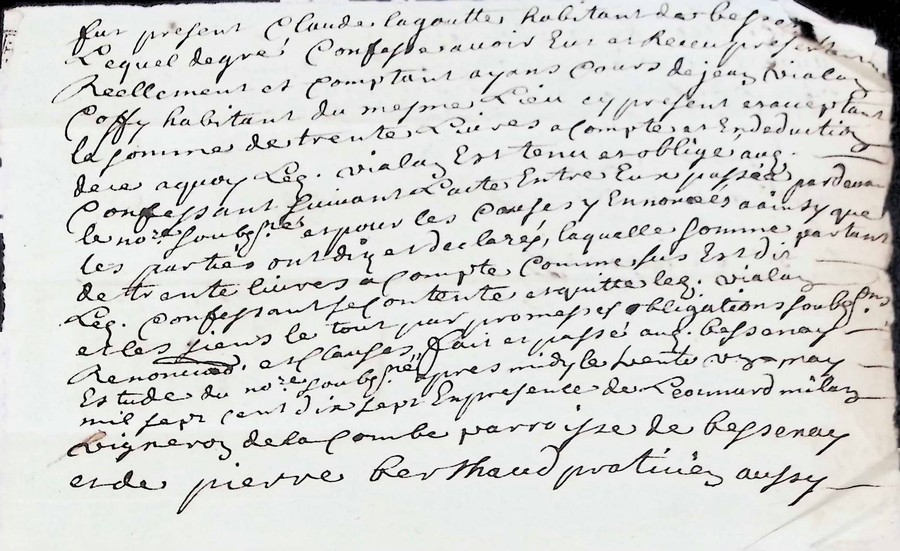 fut present Claude lagoutte habitant de bessenay
Lequel de gré Confesse avoir Eut et Receu presentement
Reellement et Comptant ayans Cours de jean vialaz
Coffy habitant du mesme Lieu cy present et acceptant
la somme de trente Livres a compte et En deduction
de ce aquoy Led. vialaz Est tenu et obligé aud.
Confessant suivant L'acte Entre Eux passée pardevant
le nore. soubsne. et pour les Causes y Ennoncées a ainsy que
les parties ont dy et declarés, laquelle somme partant
de trente livres a Compte Comme sus Est dit
Led. Confessant se Contente et quitte led. vialaz
et les siens le tout par promesses obligations soubsns.
Renonciaon. et Clauses fait et passé aud. bessenay
Estude du nore. soubsne. apres midy le vente may
mil sept cent dix sept En presence de Leonnard milaz
vigneron de la Combe parroisse de bessenay
et de pierre berthaud praticien aussy